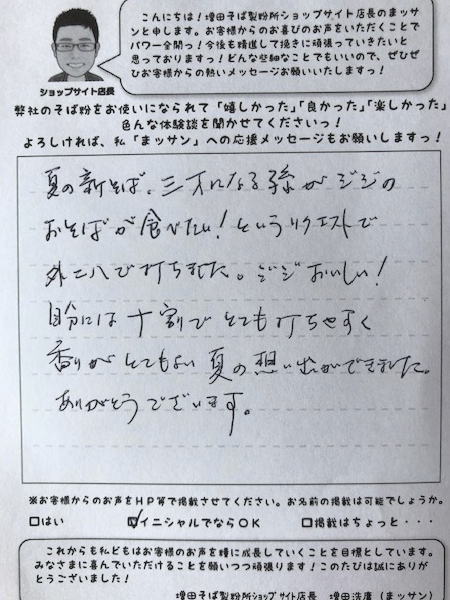 こんにちは！増田そば製粉所ショップサイト店長のまッサ
ンと申します。お客様からのお喜びのお声をいただくことで
パワー全開っ！今後も精進して挽きに頑張っていきたいと
思っておりますっ！どんな些細なことでもいいので、ぜひぜ
ひお客様からの熱いメッセージお願いいたしますっ！
ショップサイト店長
弊社のそば粉をお使いになられて「嬉しかった」「良かった」「楽しかった」
色んな体験談を聞かせてくださいっ！
よろしければ、私「まッサン」への応援メッセージもお願いしますっ！
夏の新そば、三才になる孫がジジの
おそばが食べたい！というリクエストで
外二八で打ちました。ジジおいしい！
自分には十割でとても打ちやすく
香りがとてもよい夏の想い出ができました。
ありがとうございます。
※お客様からのお声をHP等で掲載させてください。お名前の掲載は可能でしょうか。
□はい ☑イニシャルでならOK □掲載はちょっと・・・
これからも私どもはお客様のお声を糧に成長していくことを目標としています。
みなさまに喜んでいただけることを願いつつ頑張ります！このたびは誠にありが
とうございました！
増田そば製粉所ショップサイト店長 増田洗庸（まッサン）